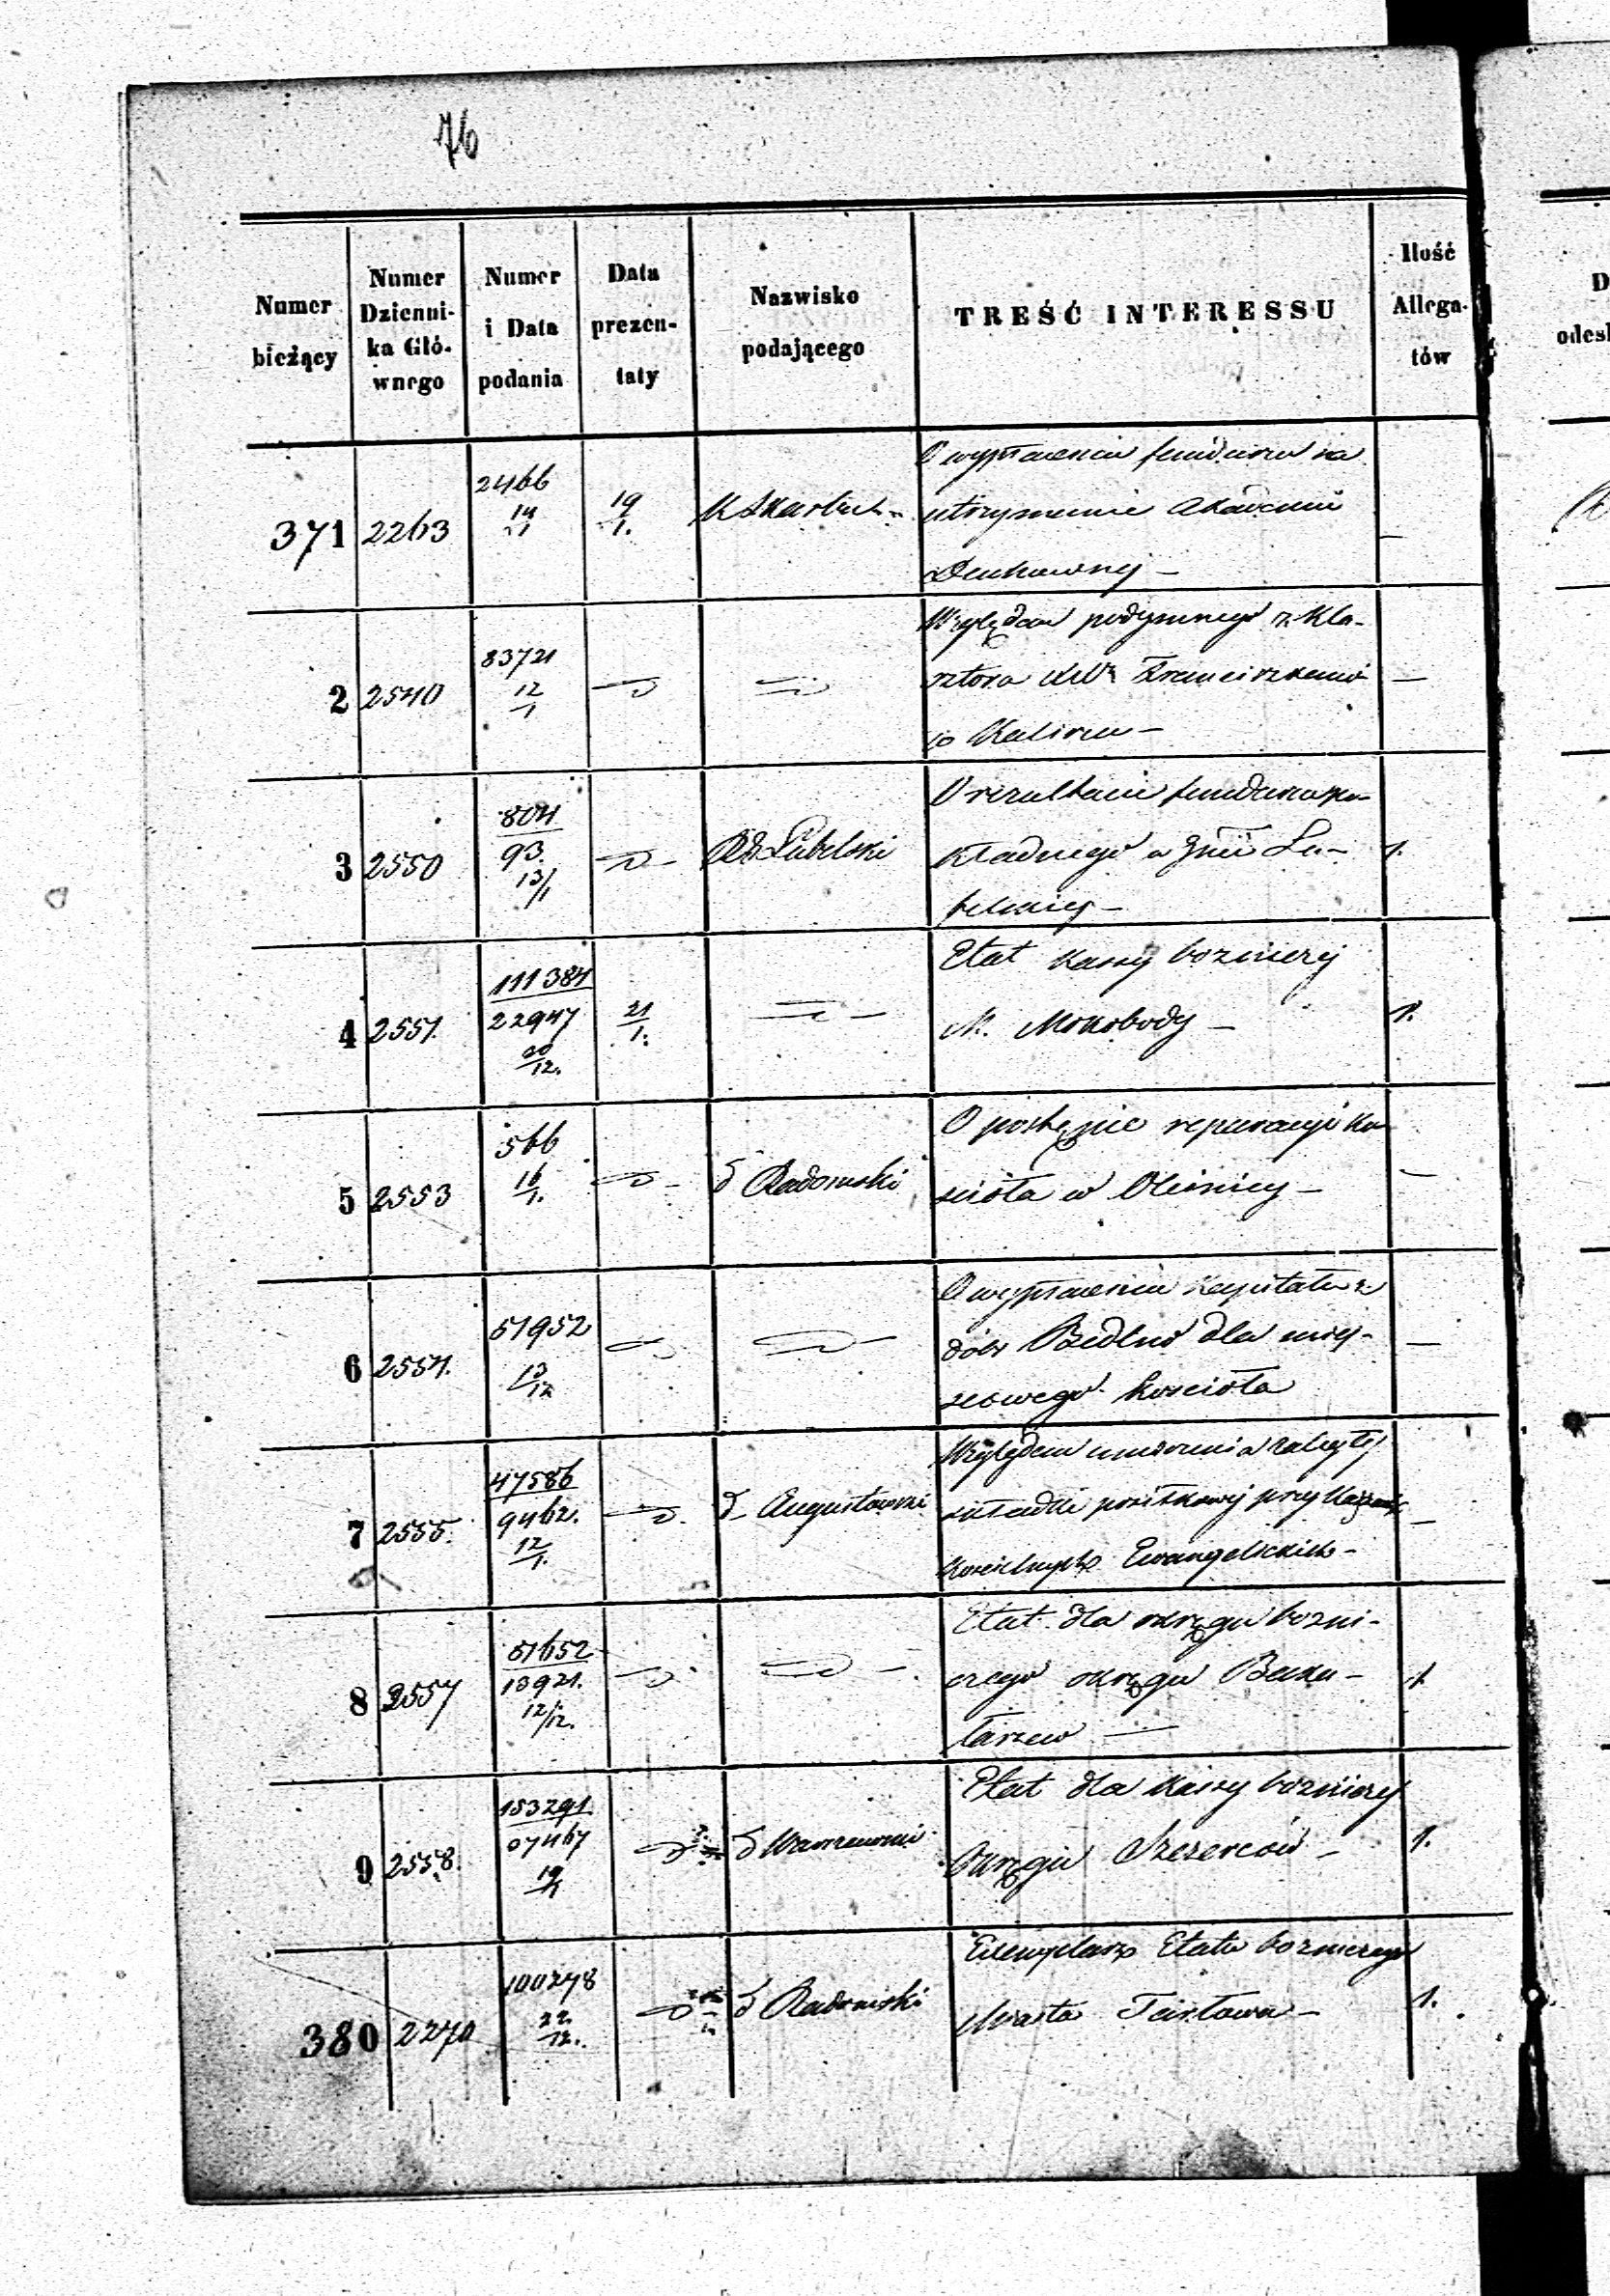 76
Numer bieżący
Numer Dzienni- ka Głó- wnego
Numer i Data podania
Data prezen- taty
Nazwisko podającego
TREŚĆ INTERESSU
Ilość Allega- tów
371 2263 2466 19/1. O wypłacenie funduszu na
utrzymanie Akademii
Duchownej –
2 2540 83721 12/1 Względem podymnego z Kla-
sztoru Franciszkanów
w Kaliszu –
3 2550 804 93. 13/1 Lubelski O rezultacie funduszu po-
kładnego w Gnii Lu- 1.
belskiej –
4 2551. 111384 22947 20/12. 21/1. Etat kassy bozniczej
M. Mokobody – 1.
5 2553 566 16/1. Radomski O postępie reperacyi ko-
ścioła w Oleśnicy –
6 2554. 51952 13/12 O wypłacenie Kapitału z
dóbr Bedlno dla miej-
scowego Kościoła
7 2555. 47586 9462. 12/1. Augustowski Względem umorzenia zaległej
składki posiłkowej przy
Kościelnych Ewangelickich –
8 2557 51652 13921. 12/12. Etat dla okręgu bozni-
czego okręgu Baka- 1
łarzew –
9 2558. 153291. 07467 Warszawski Etat dla kassy bozniczej
Okręgu Szczerców – 1.
380 2270 100278 22/12. Radomski Exemplarz Etatu bozniczego
Miasta – 1.
D
odesł